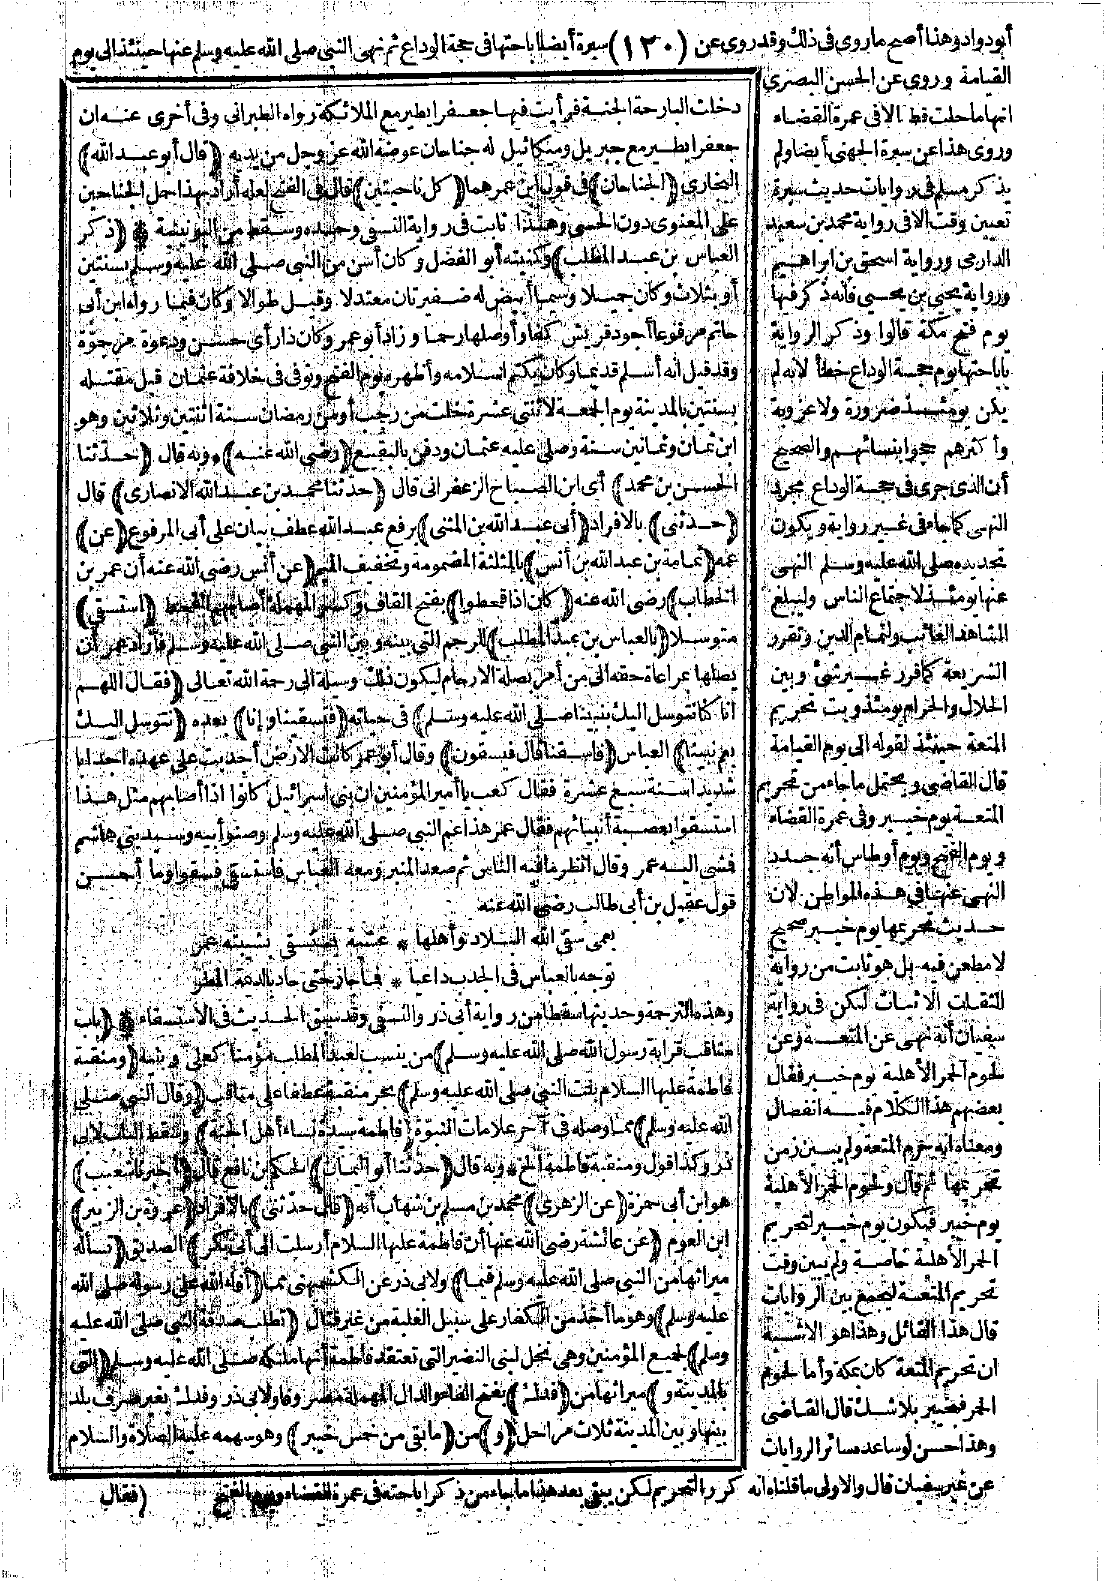 أبو داود وهذا أصح ما روى فى ذلك وقد روى عن (١٣٠) سبرة أيضا اباحتها فى حجة الوداع ثم نهى النبى صلى الله عليه وسلم عنها حينئذ الى يوم
القيامة وروى عن الحسن البصرى
انها ما حلت قط الا فى عمرة القضاء
وروى هذا عن سبرة الجهنى أيضا ولم
يذكر مسلم فى روايات حديث سبرة
تعيين وقت الا فى رواية محمد بن سعيد
الدارمى ورواية اسحق بن ابراهيم
ورواية يحيى بن يحيى فانه ذكر فيها
يوم فتح مكة قالوا وذكر الرواية
باباحتها يوم حجة الوداع خطأ لانه لم
يكن يومئذ ضرورة ولا عزوبة
وأكثرهم حجوا بنسائهم والصحيح
أن الذى جرى فى حجة الوداع مجرد
النهى كما جاء فى غير رواية ويكون
تجديده صلى الله عليه وسلم النهى
عنها يومئذ لاجتماع الناس وليبلغ
الشاهد الغائب ولتمام الدين وتقرر
الشريعة كما قرر غير شئ وبين
الحلال والحرام يومئذ وبت تحريم
المتعة حينئذ لقوله الى يوم القيامة
قال القاضى ويحتمل ما جاء من تحريم
المتعة يوم خيبر وفى عمرة القضاء
ويوم الفتح ويوم أوطاس أنه جدد
النهى عنها فى هذه المواطن لان
حديث تحريمها يوم خيبر صحيح
لا مطعن فيه بل هو ثابت من رواية
الثقات الاثبات لكن فى رواية
سفيان أنه نهى عن المتعة وعن
لحوم الحمر الأهلية يوم خيبر فقال
بعضهم هذا الكلام فيه انفصال
ومعناه انه حرم المتعة ولم يبين زمن
تحريمها ثم قال ولحوم الحمر الأهلية
يوم خيبر فيكون يوم خيبر لتحريم
الحمر الأهلية خاصة ولم يبين وقت
تحريم المتعة ليجمع بين الروايات
قال هذا القائل وهذا هو الاشبه
ان تحريم المتعة كان بمكة وأما لحوم
الحمر فبخيبر بلا شك قال القاضى
وهذا أحسن لو ساعده سائر الروايات
عن غير سفيان قال والاولى ما قلناه انه كرر التحريم لكن يبقى بعد هذا ما جاء من ذكر اباحته فى عمرة القضاء ويوم الفتح
دخلت البارحة الجنة فرأيت فيها جعفرا يطير مع الملائكة رواه الطبرانى وفى أخرى عنه ان
جعفرا يطير مع جبريل وميكائيل له جناحان عوضه الله عز وجل من يديه (قال أبو عبد الله)
البخارى (الجناحان) فى قول ابن عمر هما (كل ناحيتين) قال فى الفتح لعله أراد بهذا حمل الجناحين
على المعنوى دون الحسى وهذا ثابت فى رواية النسفى وحده وسقط من اليونينية * (ذكر
العباس بن عبد المطلب) وكنيته أبو الفضل وكان أسن من النبى صلى الله عليه وسلم بسنتين
أو بثلاث وكان جميلا وسيما أبيض له ضفيرتان معتدلا وقيل طوالا وكان فيما رواه ابن أبى
حاتم مرفوعا أجود قريش كفا وأوصلها رحما وزاد أبو عمر وكان ذا رأى حسن ودعوة مرجوة
وقد قيل انه أسلم قديما وكان يكتم اسلامه وأظهره يوم الفتح وتوفى فى خلافة عثمان قبل مقتله
بسنتين بالمدينة يوم الجمعة لاثنتى عشرة خلت من رجب أو من رمضان سنة اثنتين وثلاثين وهو
ابن ثمان وثمانين سنة وصلى عليه عثمان ودفن بالبقيع (رضى الله عنه) * وبه قال (حدثنا
الحسن بن محمد) أى ابن الصباح الزعفرانى قال (حدثنا محمد بن عبد الله الانصارى) قال
(حدثنى) بالافراد (أبى عبد الله بن المثنى) برفع عبد الله عطف بيان على أبى المرفوع (عن)
عمه (ثمامة بن عبد الله بن أنس) بالمثلثة المضمومة وتخفيف الميم (عن أنس رضى الله عنه أن عمر بن
الخطاب) رضى الله عنه (كان اذا قحطوا) بفتح القاف وكسر المهملة أصابهم القحط (استسقى)
متوسلا (بالعباس بن عبد المطلب) للرحم التى بينه وبين النبى صلى الله عليه وسلم فأراد عمر أن
يصلها بمراعاة حقه الى من أمر بصلة الارحام ليكون ذلك وسيلة الى رحمة الله تعالى (فقال اللهم
انا كنا نتوسل اليك بنبينا صلى الله عليه وسلم) فى حياته (فتسقينا وانا) بعده (نتوسل اليك
بعم نبينا) العباس (فاسقنا قال فيسقون) وقال أبو عمر كانت الارض أجدبت على عهده اجدابا
شديدا سنة سبع عشرة فقال كعب يا أمير المؤمنين ان بنى اسرائيل كانوا اذا أصابهم مثل هذا
استسقوا بعصبة أنبيائهم فقال عمر هذا عم النبى صلى الله عليه وسلم وصنو أبيه وسيد بنى هاشم
فشى اليه عمر وقال انظر ما فيه الناس ثم صعد المنبر ومعه العباس فاستسقى فسقوا وما أحسن
قول عقيل بن أبى طالب رضى الله عنه
بعمى سقى الله البلاد وأهلها * عشية يستسقى بشيبته عمر
توجه بالعباس فى الجدب داعيا * فما جاز حتى جاد بالديمة المطر
وهذه الترجمة وحديثها سقطا من رواية أبى ذر والنسفى وقد سبق الحديث فى الاستسقاء * (باب
مناقب قرابة رسول الله صلى الله عليه وسلم) من ينسب لعبد المطلب مؤمنا كعلى وبنيه (ومنقبة
فاطمة عليها السلام بنت النبى صلى الله عليه وسلم) بجر منقبة عطفا على مناقب (وقال النبى صلى
الله عليه وسلم) مما وصله فى آخر علامات النبوة (فاطمة سيدة نساء أهل الجنة) وسقط الباب لابى
ذر وكذا قول ومنقبة فاطمة الخ * وبه قال (حدثنا أبو اليمان) الحكم بن نافع قال (أخبرنا شعيب)
هو ابن أبى حمزة (عن الزهرى) محمد بن مسلم بن شهاب أنه (قال حدثنى) بالافراد (عروة بن الزبير)
ابن العوام (عن عائشة رضى الله عنها أن فاطمة عليها السلام أرسلت الى أبى بكر) الصديق (تسأله
ميراثها من النبى صلى الله عليه وسلم فيما) ولابى ذر عن الكشميهنى مما (أفاء الله على رسوله صلى الله
عليه وسلم) وهو ما أخذ من الكفار على سبيل الغلبة من غير قتال (تطلب صدقة النبى صلى الله عليه
وسلم) لجميع المؤمنين وهى نخل لبنى النضير التى تعتقد فاطمة أنها ملكه صلى الله عليه وسلم (التى
بالمدينة و) ميراثها من (فدك) بفتح الفاء والدال المهملة مصروفا ولابى ذر وفدك بغير صرف بلد
بينها وبين المدينة ثلاث مراحل (و) من (ما بقى من خمس خيبر) وهو سهمه عليه الصلاة والسلام
(فقال